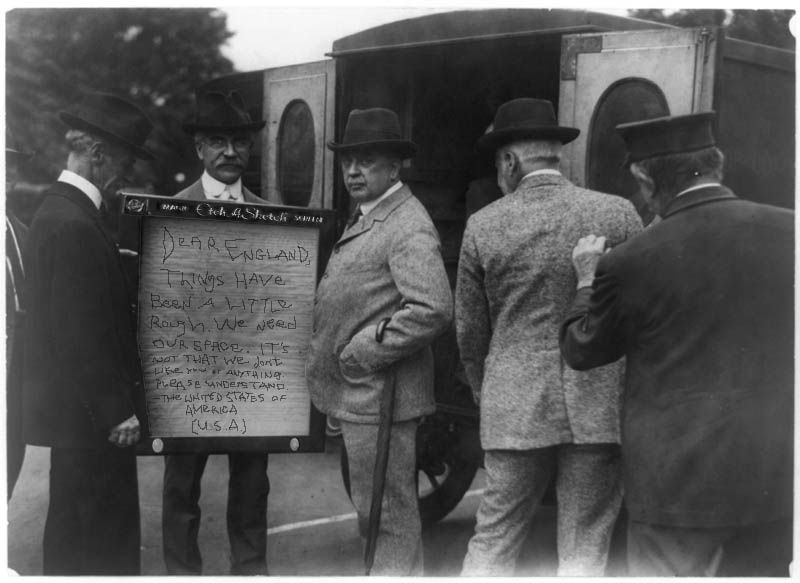 MAGIC Etch A Sketch SCREEN
DEAR ENGLAND,
THINGS HAVE
BEEN A LITTLE
ROUGH. WE NEED
OUR SPACE. IT'S
NOT THAT WE DON'T
LIKE YOU OR ANYTHING.
PLEASE UNDERSTAND.
-THE UNITED STATES OF
AMERICA
(U.S.A)